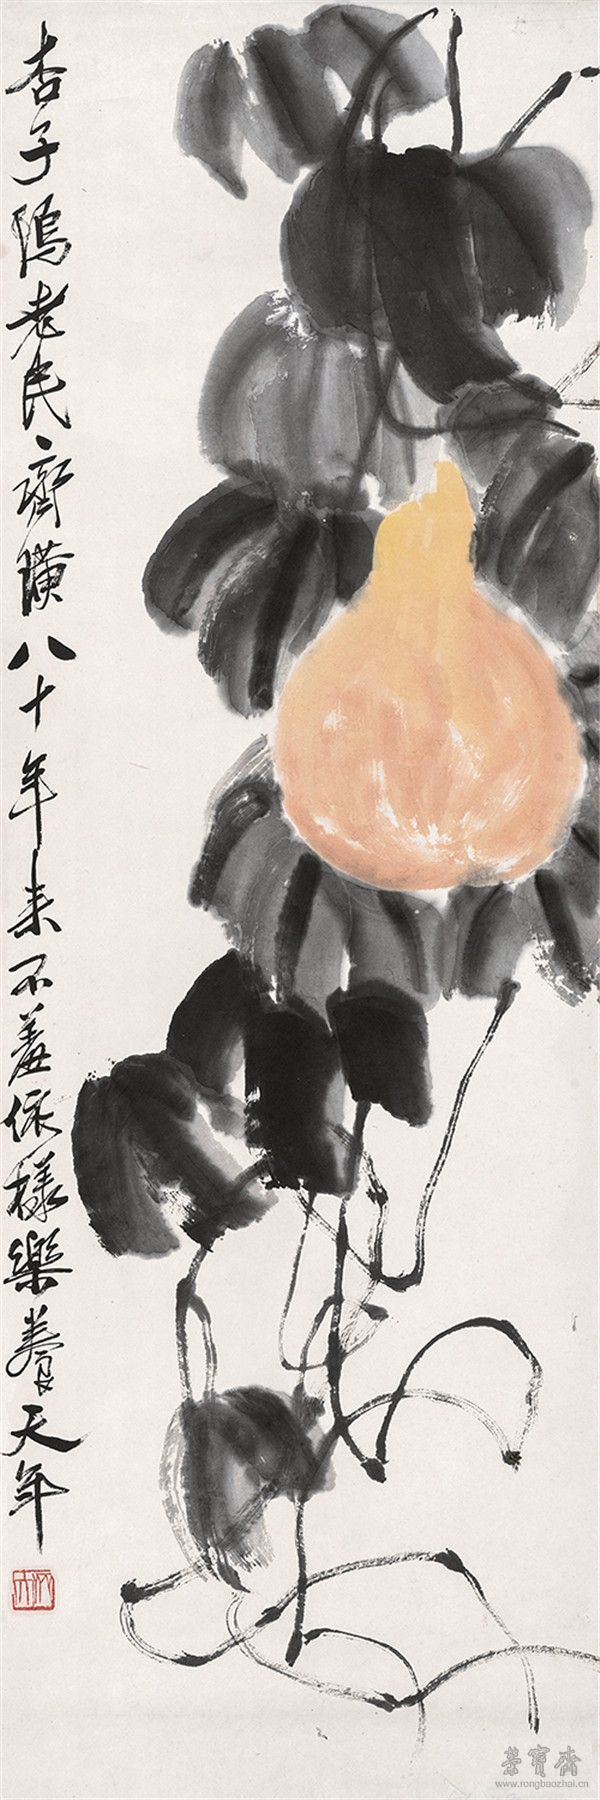 杏子隖老民齊璜八十年來不羞依樣樂養天年
木人
榮寶齋
www.rongbaozhai.cn